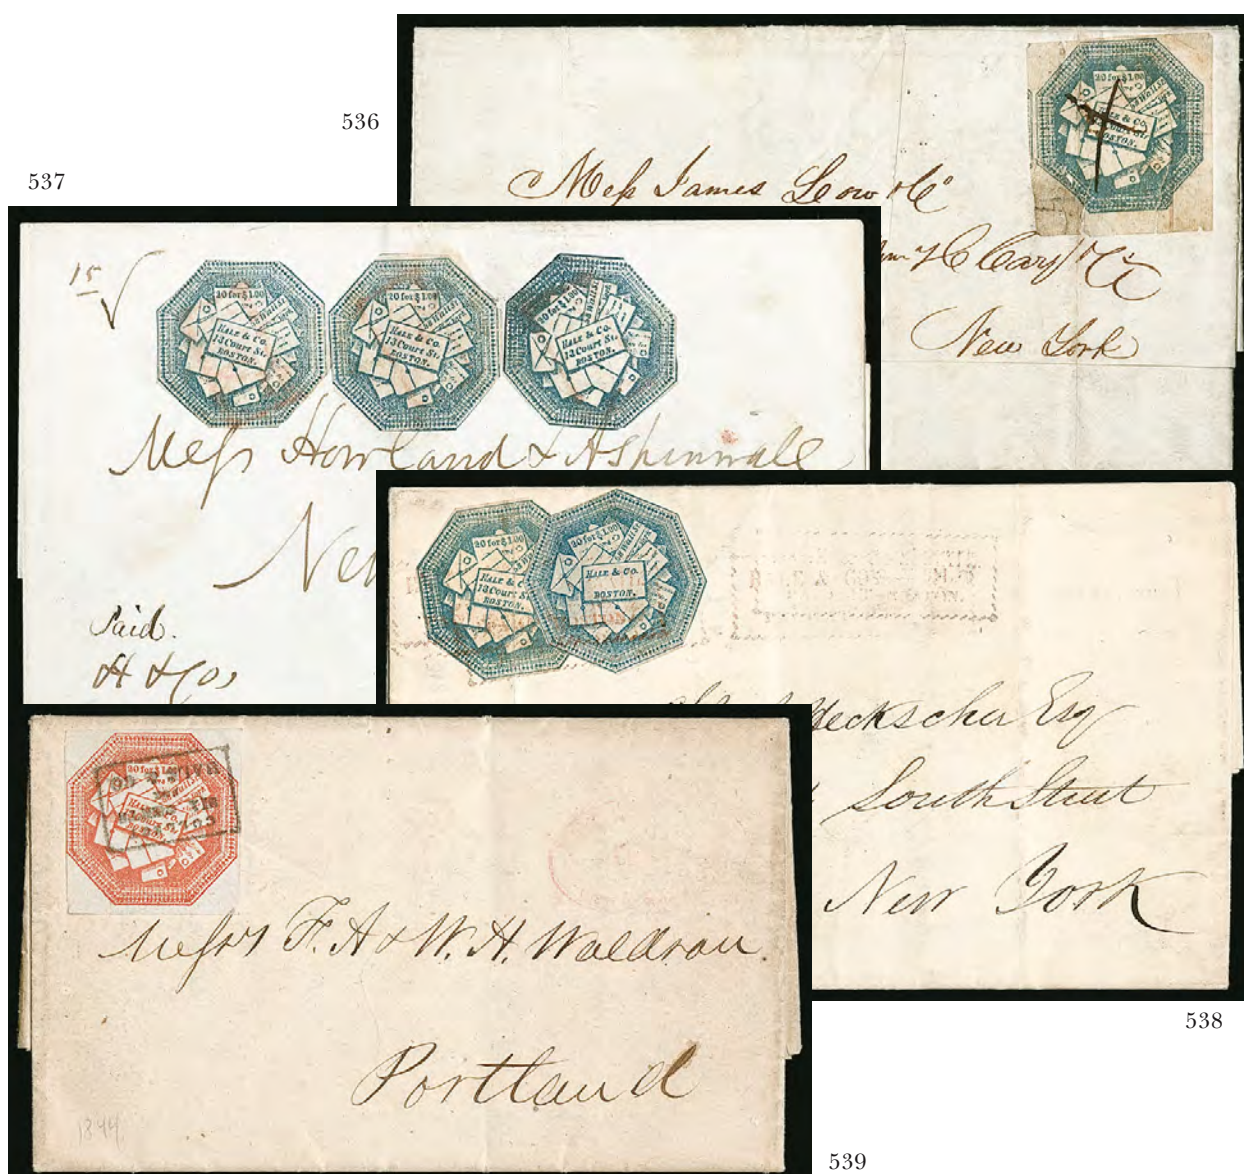 536
537
20 for $1.00
HALE & Co.
13 Court St.
BOSTON.
Mess James Low & Co
New York
15
20 for $1.00
HALE & Co.
13 Court St.
BOSTON.
20 for $1.00
HALE & Co.
13 Court St.
BOSTON.
20 for $1.00
HALE & Co.
13 Court St.
BOSTON.
Mess Howland & Aspinwall
Paid.
H & Co
20 for $1.00
HALE & Co.
13 Court St.
BOSTON.
20 for $1.00
HALE & Co.
BOSTON.
HALE & COS
Heckscher Esq
South Street
New York
538
20 for $1.00
HALE & Co.
13 Court St.
BOSTON.
Messrs F. A & W. A. Waldron.
Portland
1844
539